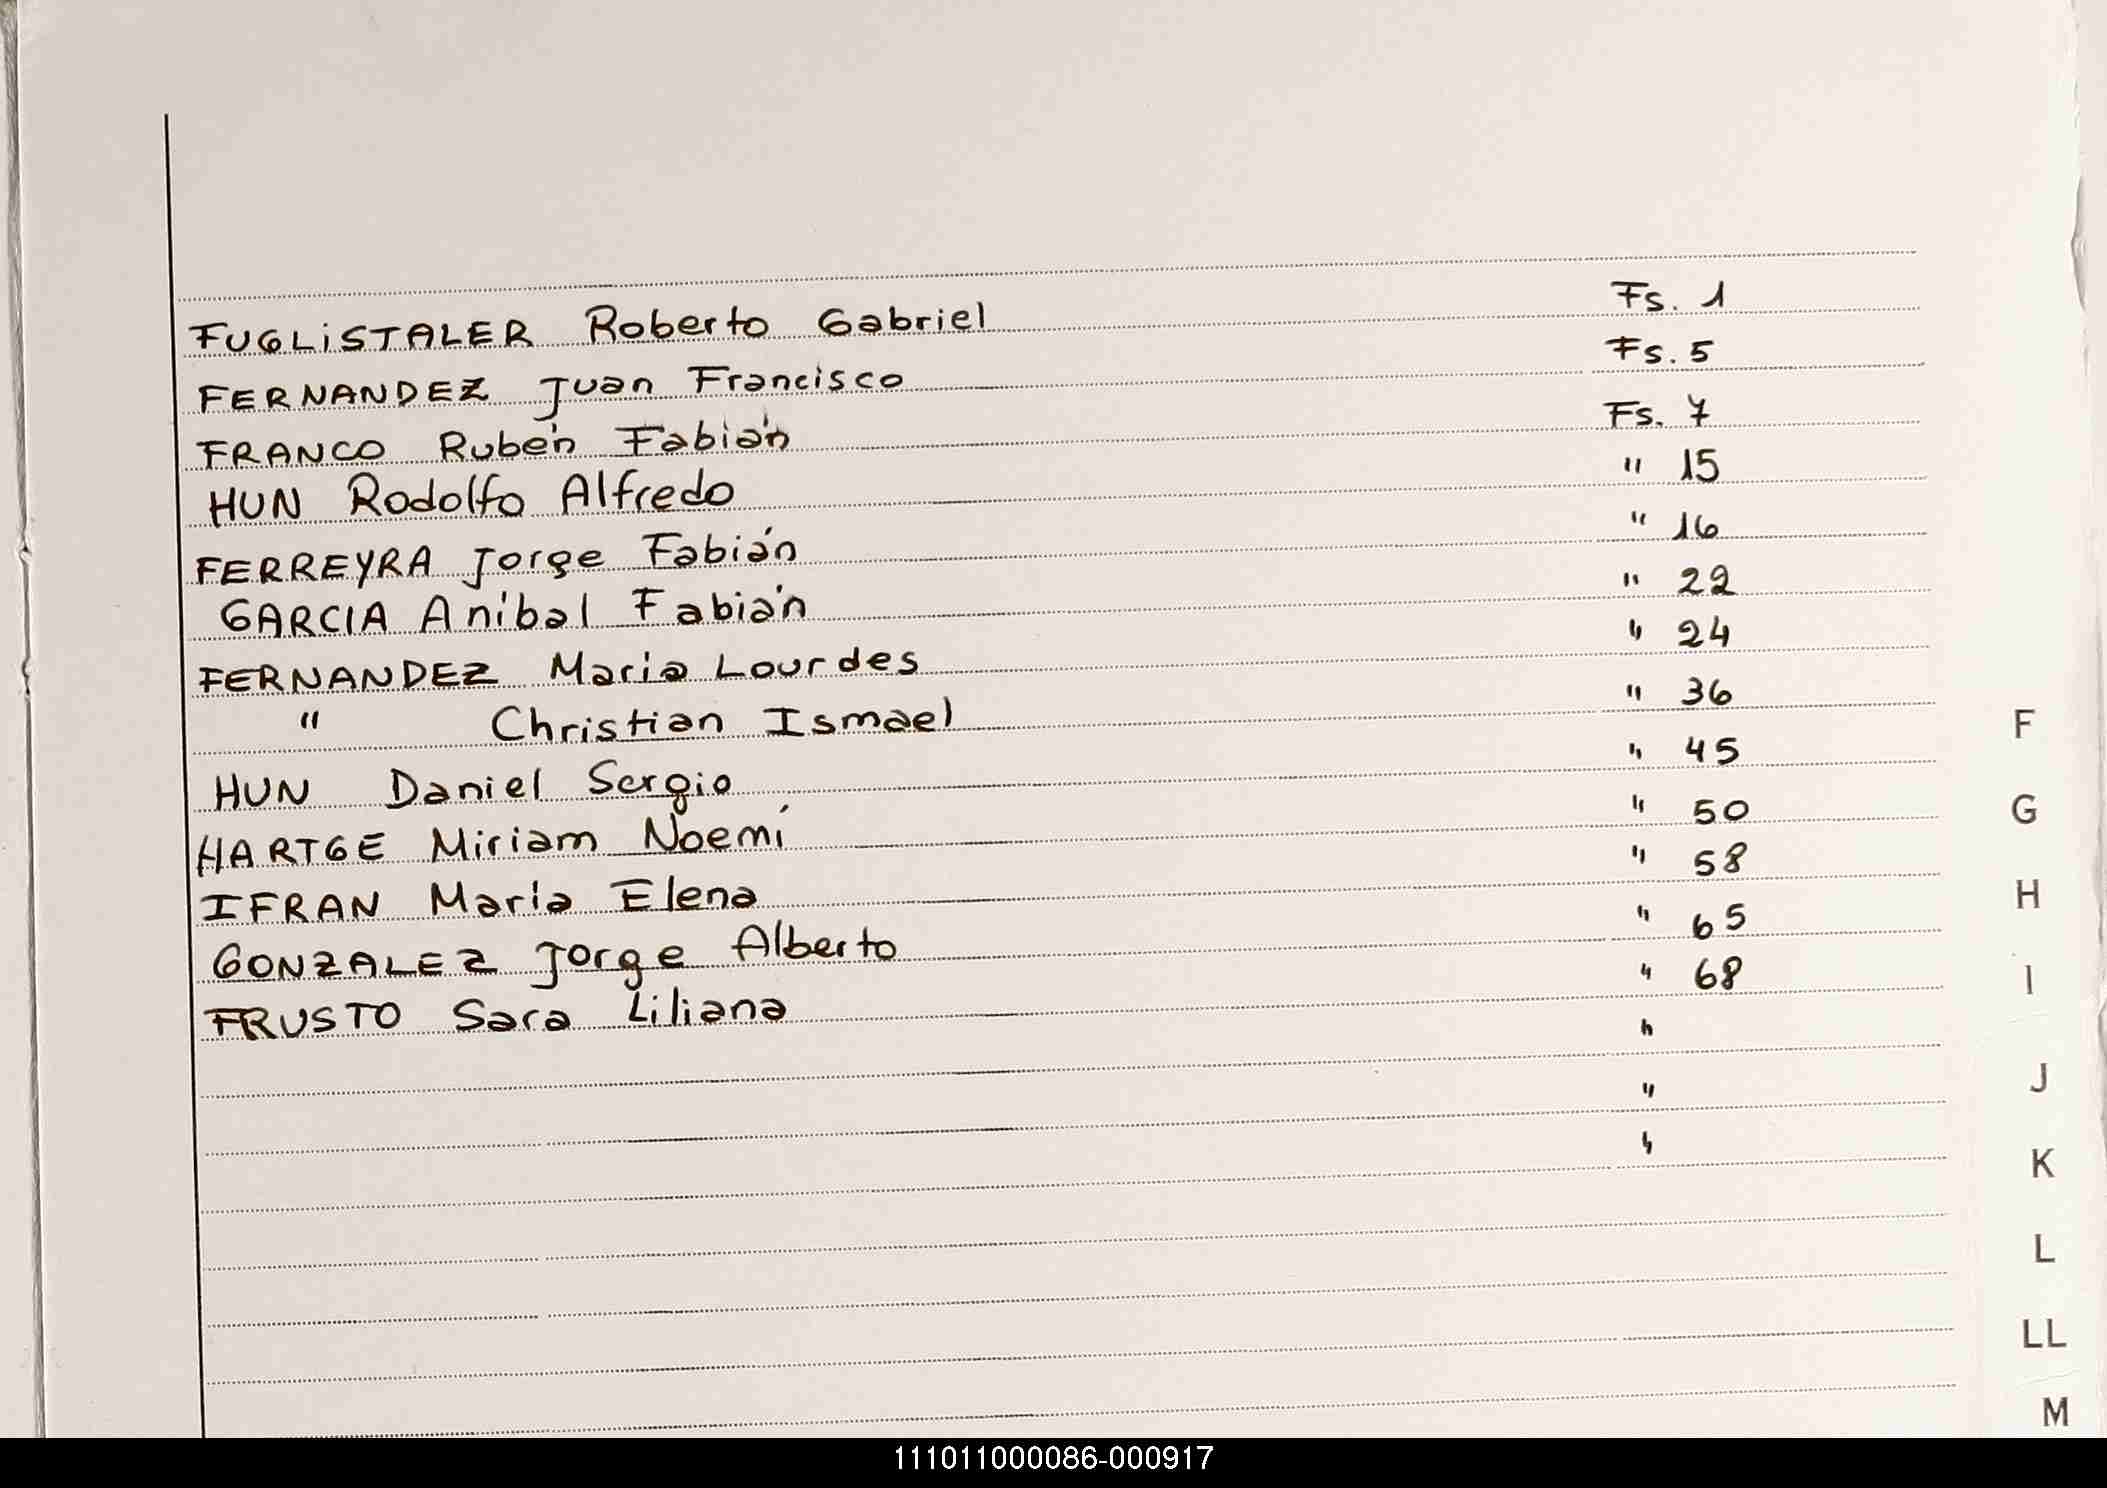 FUGLISTALER Roberto Gabriel Fs. 1
FERNANDEZ Juan Francisco Fs. 5
FRANCO Rubén Fabián Fs. 7
HUN Rodolfo Alfredo " 15
FERREYRA Jorge Fabián " 16
GARCIA Anibal Fabián " 22
FERNANDEZ Maria Lourdes " 24
" Christian Ismael " 36
HUN Daniel Sergio " 45
HARTGE Miriam Noemí " 50
IFRAN Maria Elena " 58
GONZALEZ Jorge Alberto " 65
FRUSTO Sara Liliana " 68
"
"
"
F
G
H
I
J
K
L
LL
M
111011000086-000917